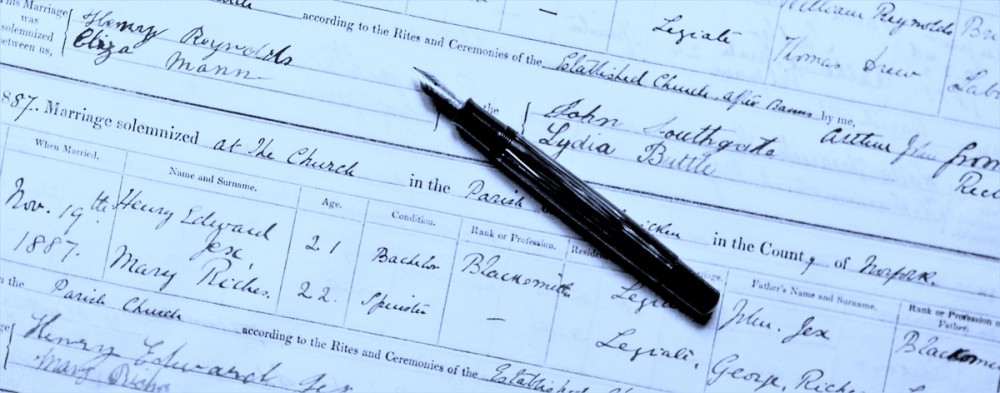 William Reynolds
Legiate
Thomas Drew
This Marriage was solemnized between us,
Henry Reynolds
Eliza Mann
according to the Rites and Ceremonies of the Established Church after Banns by me,
the
John Southgate
Lydia Buttle
Arthur John
887. Marriage solemnized at The Church in the Parish in the County of Norfolk.
When Married.
Name and Surname.
Age.
Condition.
Rank or Profession.
Father's Name and Surname.
Rank or Profession of Father.
Nov. 19th 1887.
Henry Edward Jex
21
Bachelor
Blacksmith
Legiate
John Jex
Mary Riches.
22.
Spinster
—
Legiate,
George Riches
the Parish Church according to the Rites and Ceremonies of the Established
Henry Edward Jex
Mary Riches